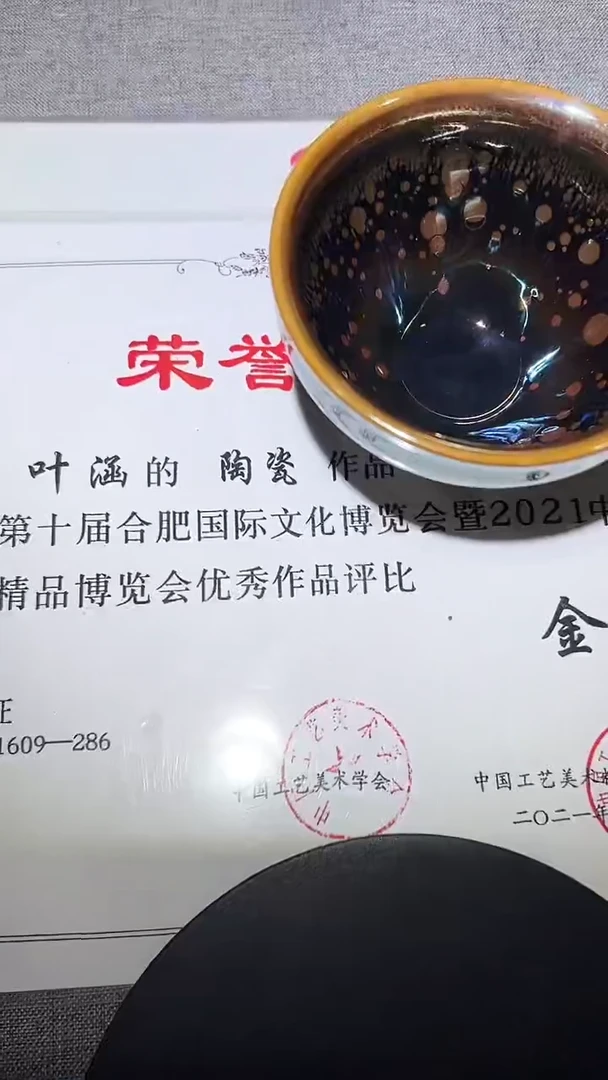 荣誉
叶涵的 陶瓷 作品
第十届合肥国际文化博览会暨2021中
精品博览会优秀作品评比
金
证
1609—286
中国工艺美术学会
中国工艺美术
二〇二一年